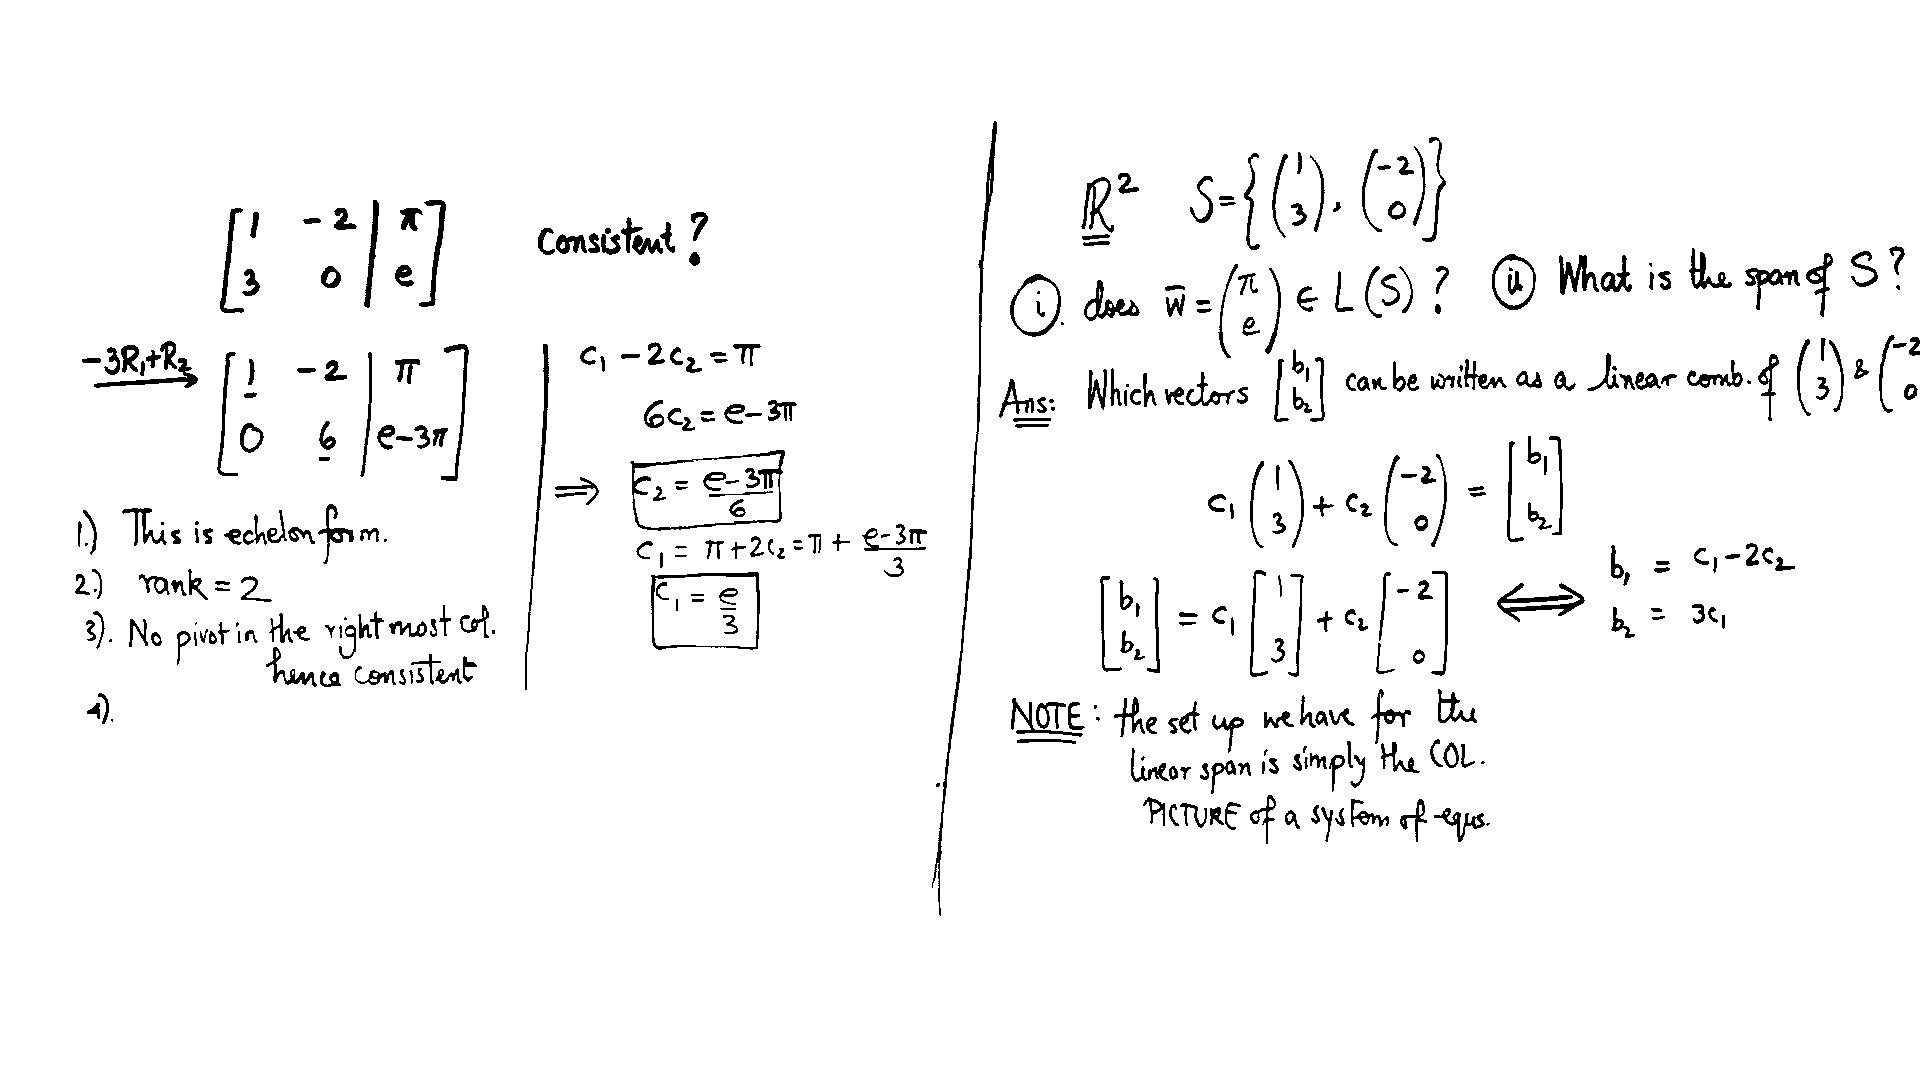 [1 -2 | π
3 0 | e] Consistent?
-3R₁+R₂ → [1 -2 | π
0 6 | e-3π]
1.) This is echelon form.
2.) rank = 2
3). No pivot in the right most col.
hence consistent
4).
c₁ - 2c₂ = π
6c₂ = e-3π
⇒ c₂ = (e-3π)/6
c₁ = π+2c₂ = π + (e-3π)/3
c₁ = e/3
ℝ² S={(1 3), (-2 0)}
(i). does w̄ = (π e) ∈ L(S)? (ii) What is the span of S?
Ans: Which vectors [b₁ b₂] can be written as a linear comb. of (1 3) & (-2 0
c₁ (1 3) + c₂ (-2 0) = [b₁ b₂]
[b₁ b₂] = c₁ [1 3] + c₂ [-2 0] ⟺ b₁ = c₁-2c₂
b₂ = 3c₁
NOTE: the set up we have for the
linear span is simply the COL.
PICTURE of a system of equs.